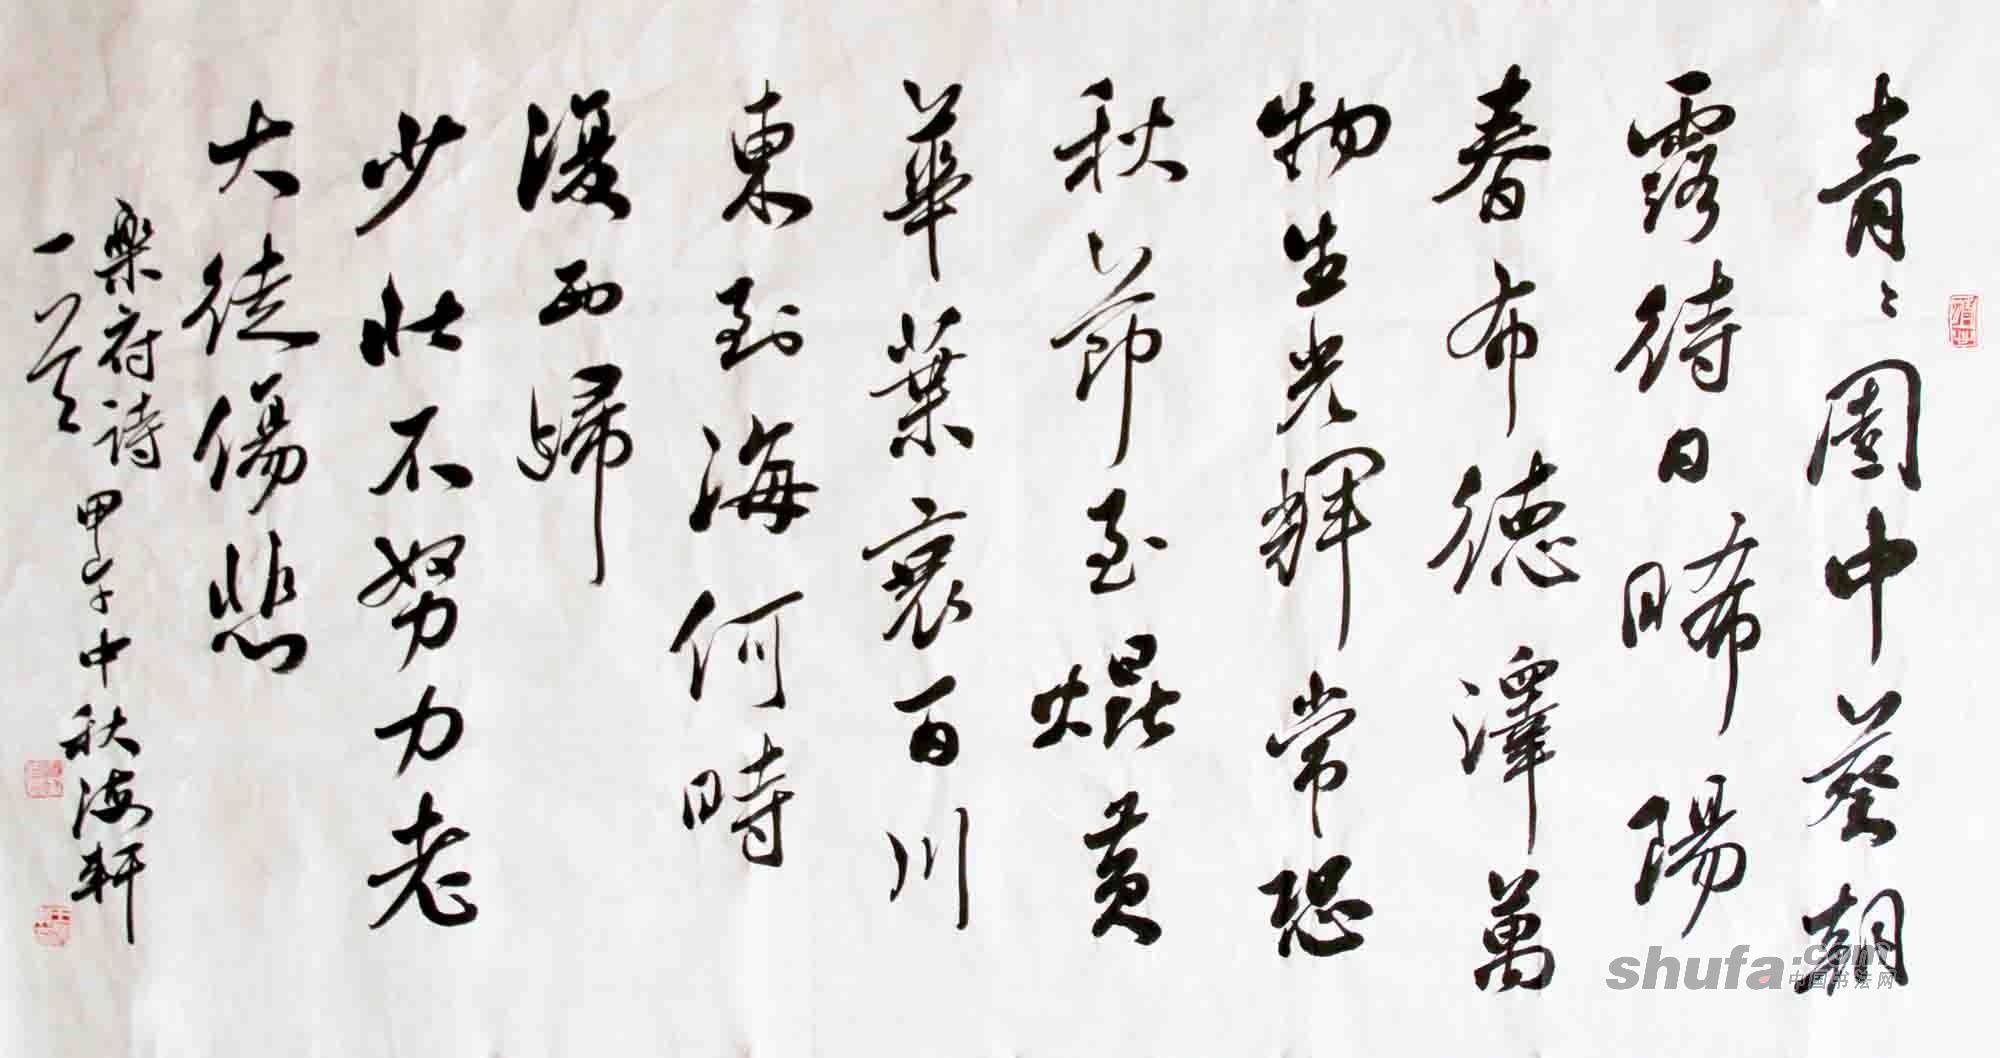 青〻園中葵朝
露待日晞陽
春布德澤萬
物生光輝常恐
秋節至焜黃
華葉衰百川
東到海何時
復西歸
少壯不努力老
大徒傷悲
樂府詩
一首 甲午中秋海軒
shufa.com
中国书法网